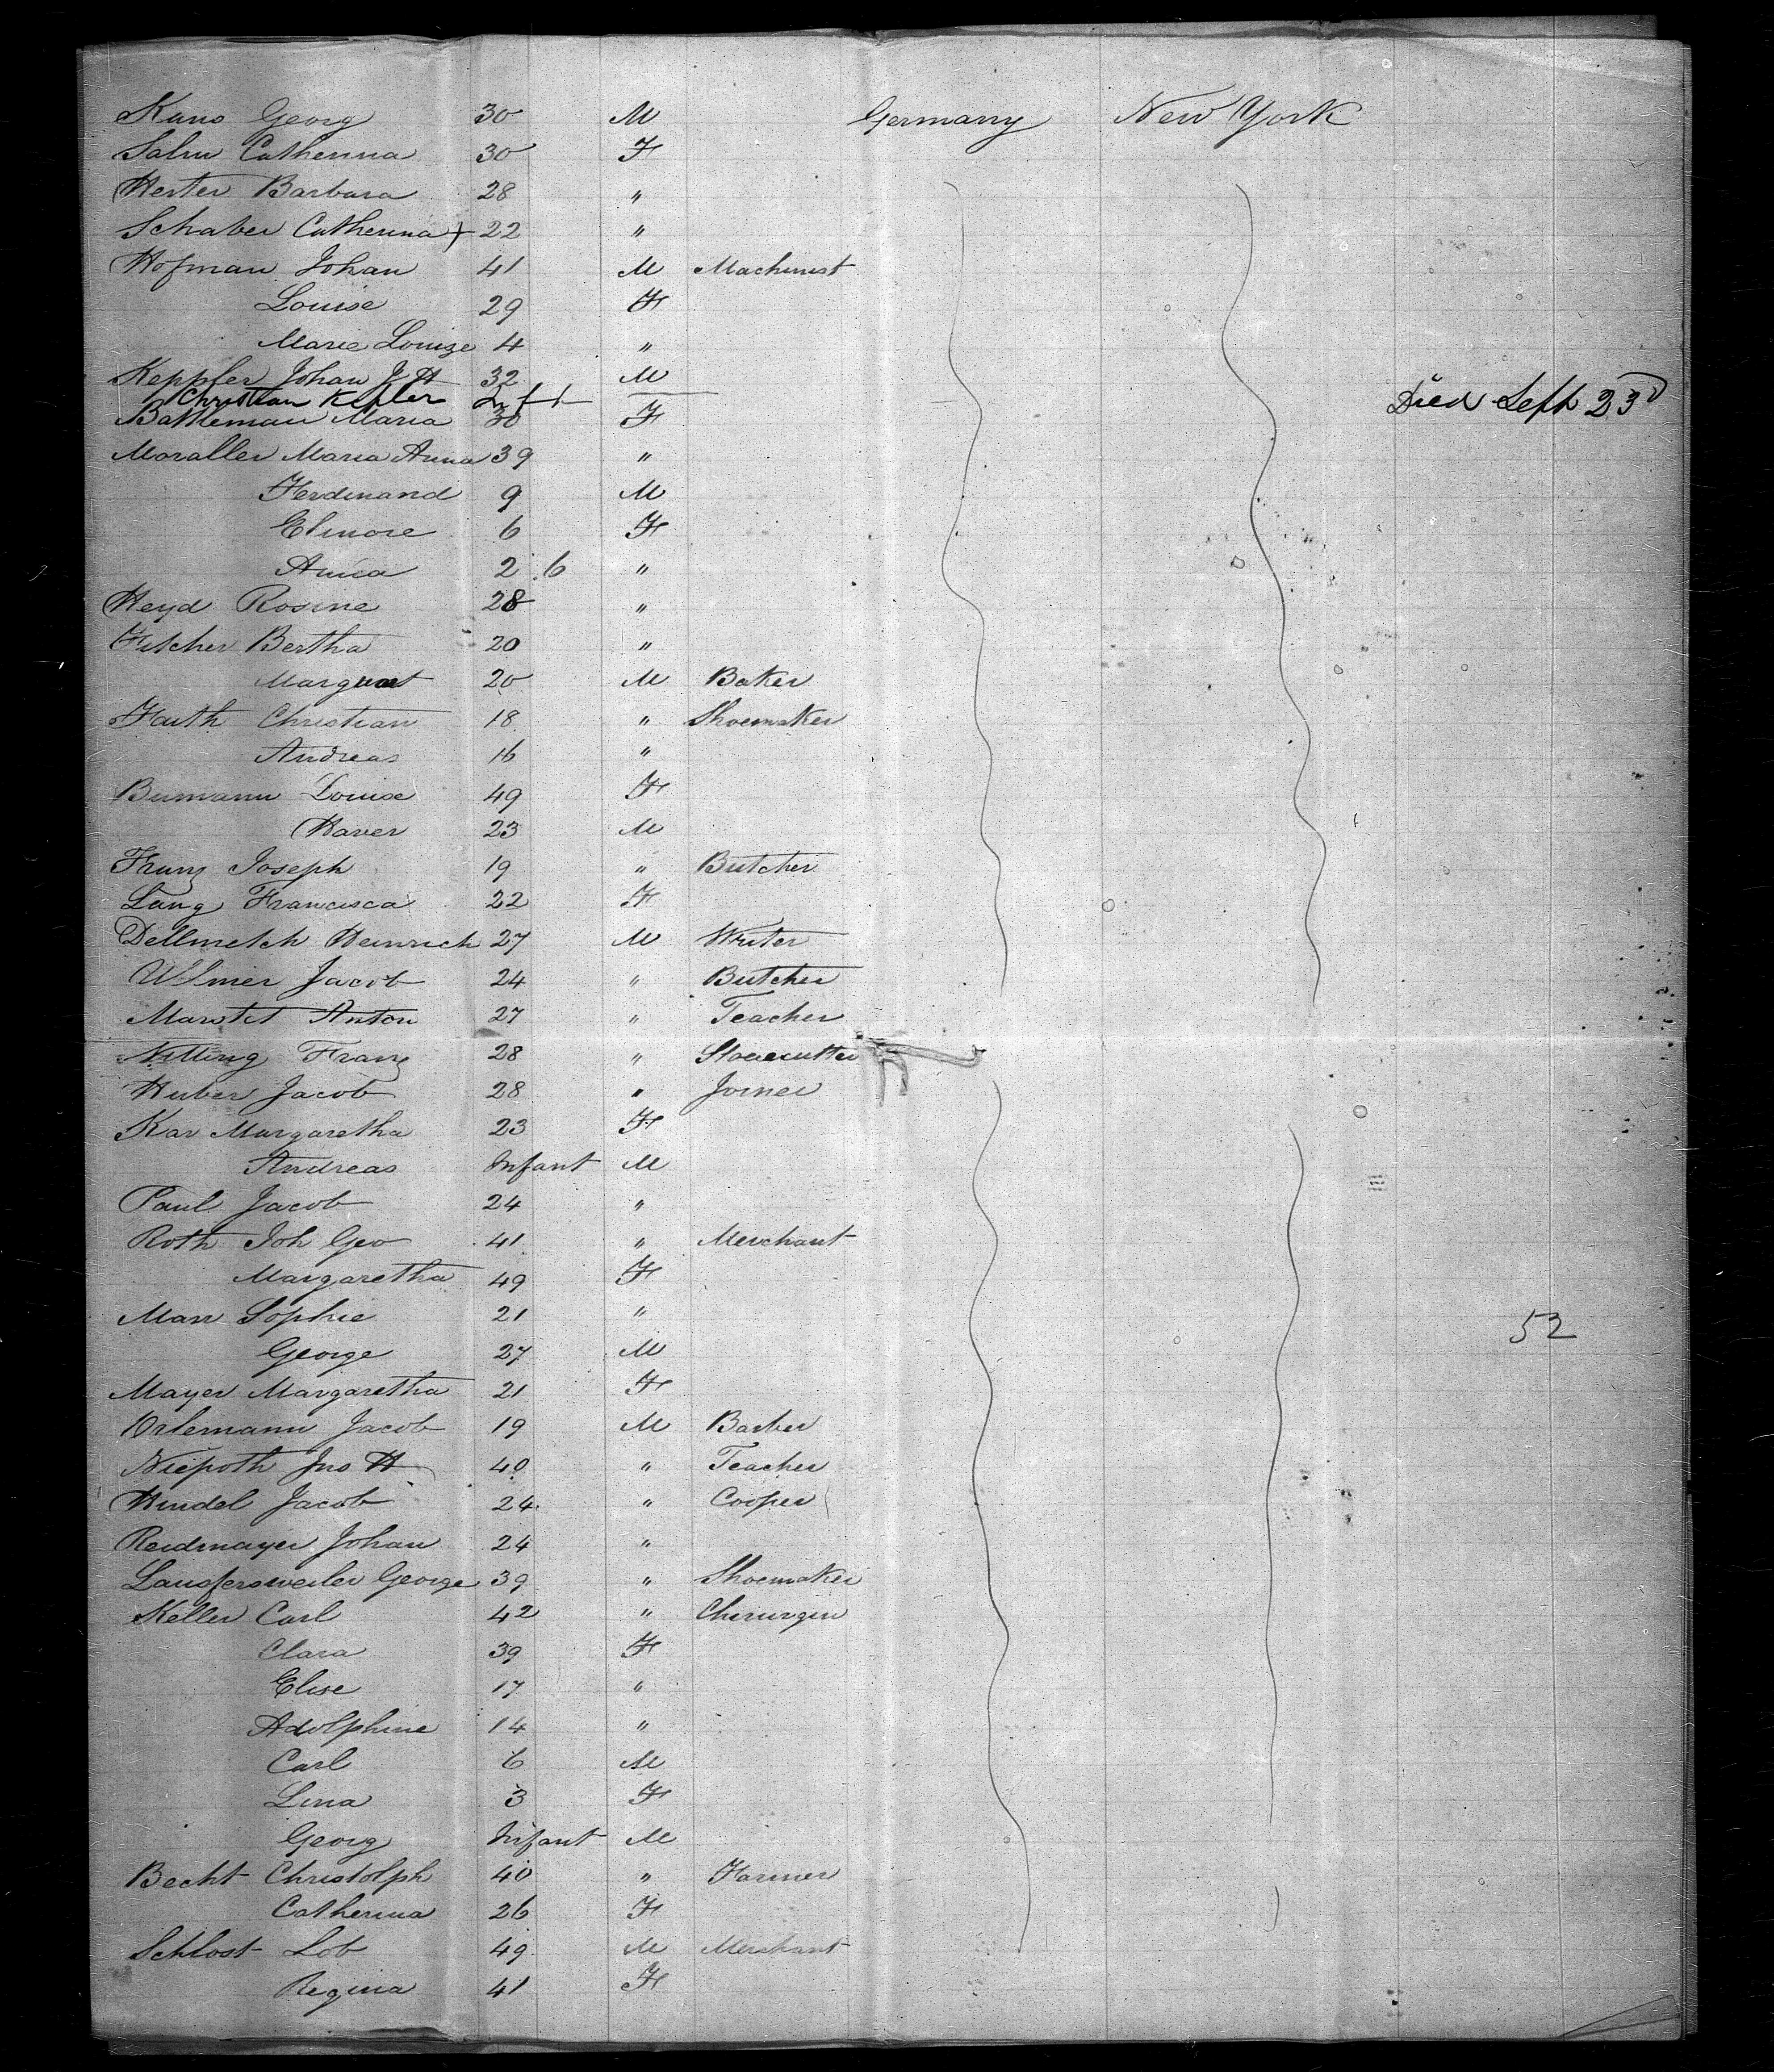 Kuns Georg 30 M Germany New York
Salm Catherina 30 F
Hester Barbara 28 "
Schaber Catherina + 22 "
Hofman Johan 41 M Machinist
Louise 29 F
Marie Louize 4 "
Keppler Johan J H 32 M
Christian Kepler Inft — Died Sept 23d
Battleman Maria 30 F
Moraller Maria Anna 39 "
Ferdinand 9 M
Elinore 6 F
Anna 2 .6 "
Heyd Rosine 28 "
Fitcher Bertha 20 "
20 M Baker
Fauth Christian 18 " Shoemaker
Andreas 16 "
Bumann Louise 49 F
Xaver 23 M
Franz Joseph 19 " Butcher
Lang Francisca 22 F
Dellmetch Heinrich 27 M Writer
Ulmer Jacob 24 " Butcher
Anton 27 " Teacher
Nilling Franz 28 " Stonecutter
Huber Jacob 28 " Joiner
Kar Margaretha 23 F
Andreas Infant M
Paul Jacob 24 "
Roth Joh Geo 41 " Merchant
Margaretha 49 F
Marr Sophie 21 " 52
George 27 M
Mayer Margaretha 21 F
Orlemann Jacob 19 M Barber
Niepoth Jno H 40 " Teacher
Hindel Jacob 24 " Cooper
Reidmayer Johan 24 "
Laufersweiler George 39 " Shoemaker
Keller Carl 42 " Cherurgen
Clara 39 F
Elise 17 "
Adolphine 14 "
Carl 6 M
Lina 3 F
Georg Infant M
Becht Christolph 40 " Farmer
Catherina 26 F
Schlost Lob 49 M Merchant
Regina 41 F